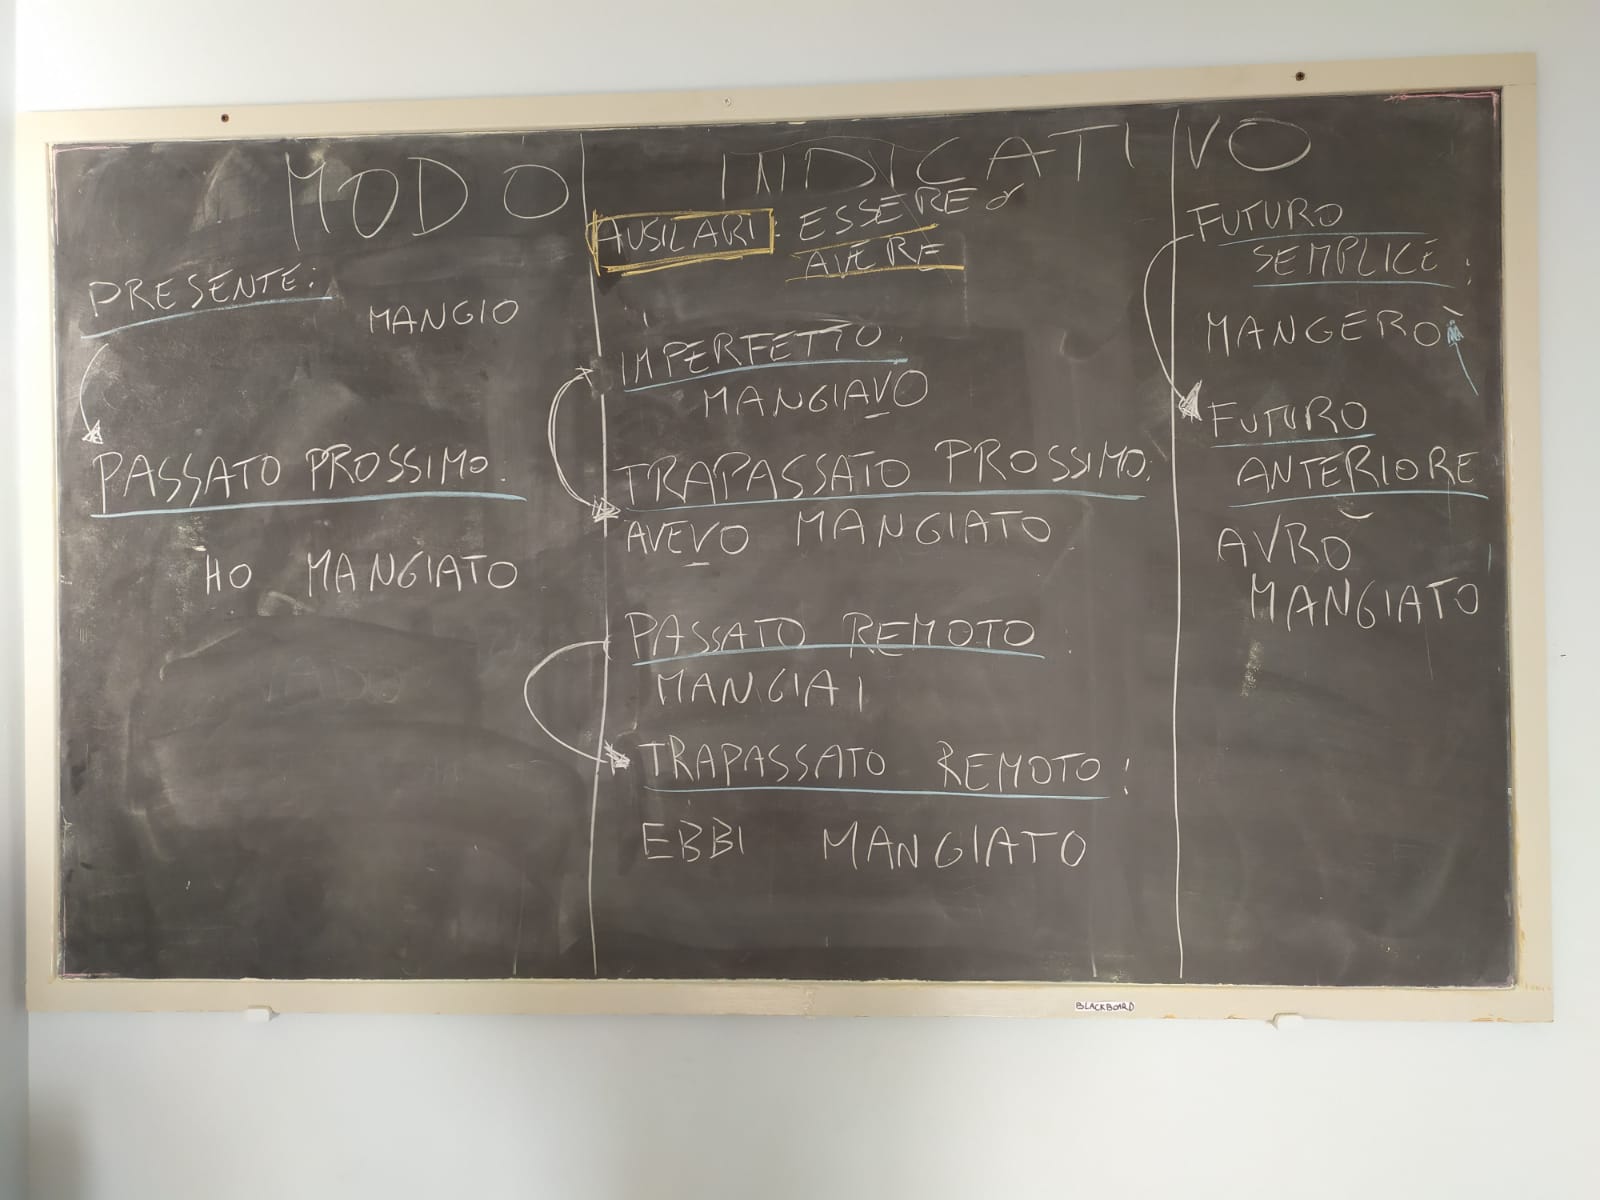 MODO INDICATIVO
PRESENTE:
MANGIO
PASSATO PROSSIMO:
HO MANGIATO
AUSILARI: ESSERE o
AVERE
IMPERFETTO:
MANGIAVO
TRAPASSATO PROSSIMO:
AVEVO MANGIATO
PASSATO REMOTO:
MANGIAI
TRAPASSATO REMOTO:
EBBI MANGIATO
FUTURO
SEMPLICE:
MANGERÒ
FUTURO
ANTERIORE
AVRÒ
MANGIATO
BLACKBOARD